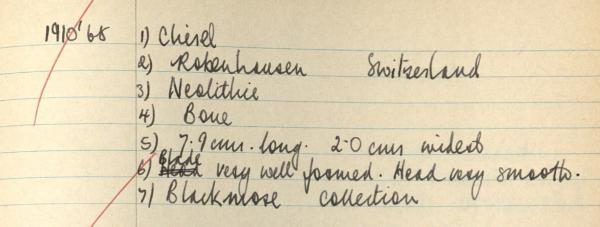 1910'68 1) Chisel
2) Robenhausen Switzerland
3) Neolithic
4) Bone
5) 7.9 cms. long. 2.0 cms widest
Blade
6) Head very well formed. Head very smooth.
7) Blackmore collection